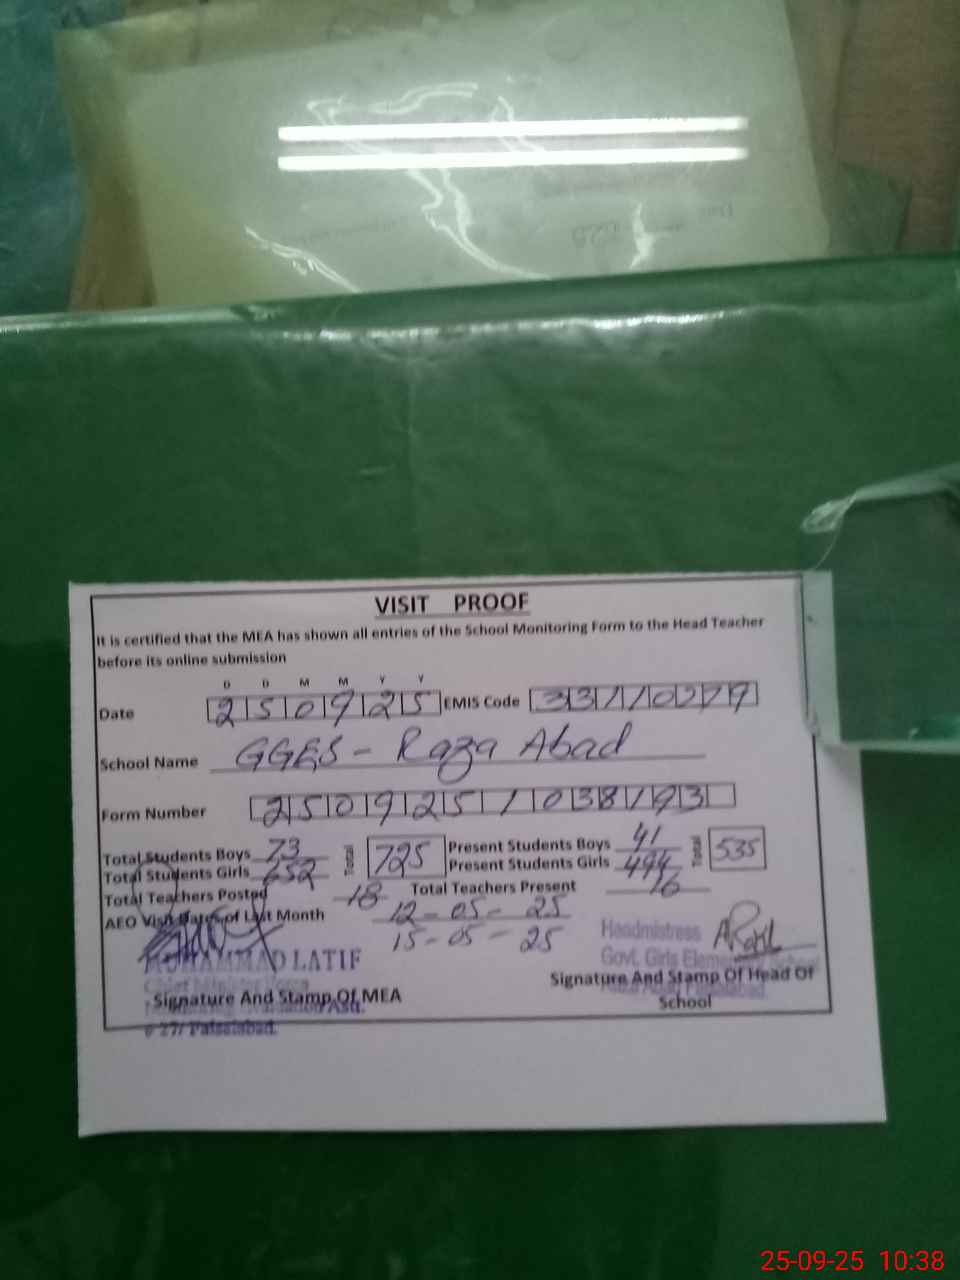 VISIT PROOF
It is certified that the MEA has shown all entries of the School Monitoring Form to the Head Teacher
before its online submission
D D M M Y Y
Date 250925 EMIS Code 33110279
School Name GGES - Raza Abad
Form Number 2509251038193
Total Students Boys 73 Total 725 Present Students Boys 41 Total 535
Total Students Girls 652 Present Students Girls 494
Total Teachers Posted 18 Total Teachers Present 16
AEO Visit Dates of Last Month 12-05-25
15-05-25
MUHAMMAD LATIF
Headmistress
Govt. Girls Elementary School
Signature And Stamp Of MEA
Signature And Stamp Of Head Of
School
25-09-25 10:38